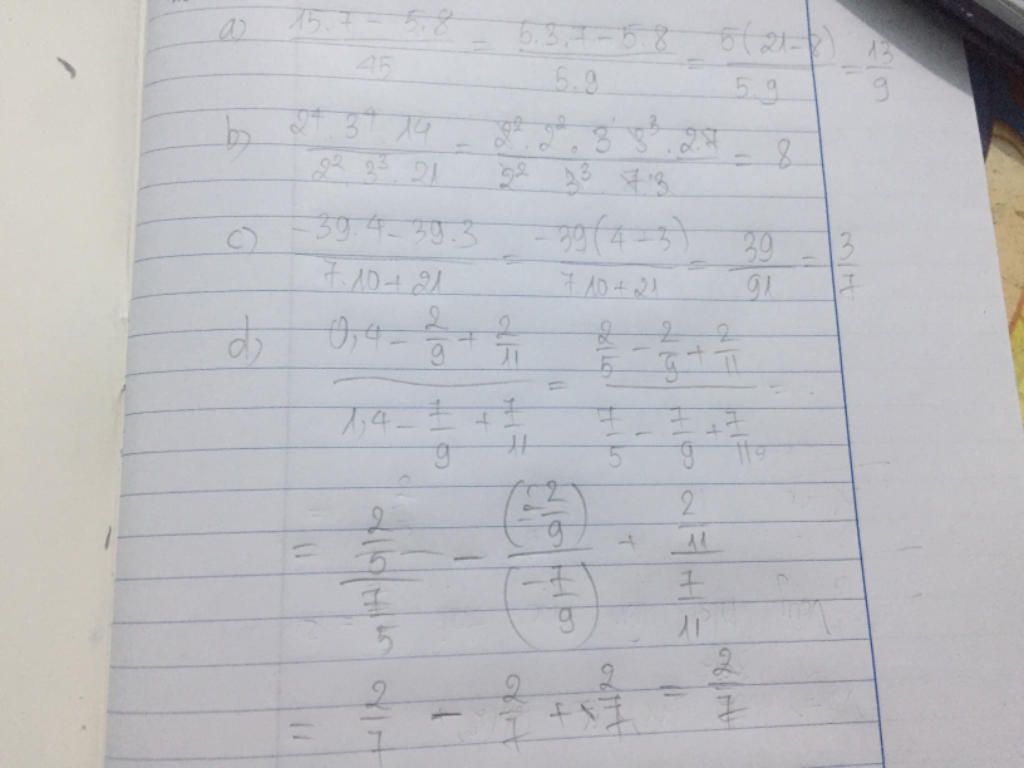 a) (15.7 - 5.8)/45 = (5.3.7 - 5.8)/(5.9) = 5(21-8)/(5.9) = 13/9
b) (2⁴.3⁴.14)/(2².3³.21) = (2².2².3 3³.2.7)/(2² 3³.7.3) = 8
c) (-39.4-39.3)/(7.10+21) = -39(4-3)/(7.10+21) = 39/91 = 3/7
d) (0,4 - 2/9 + 2/11)/(1,4 - 7/9 + 7/11) = (2/5 - 2/9 + 2/11)/(7/5 - 7/9 + 7/11) =
= (2/5)/(7/5) - (-2/9)/(-7/9) + (2/11)/(7/11)
= 2/7 - 2/7 + 2/7 = 2/7